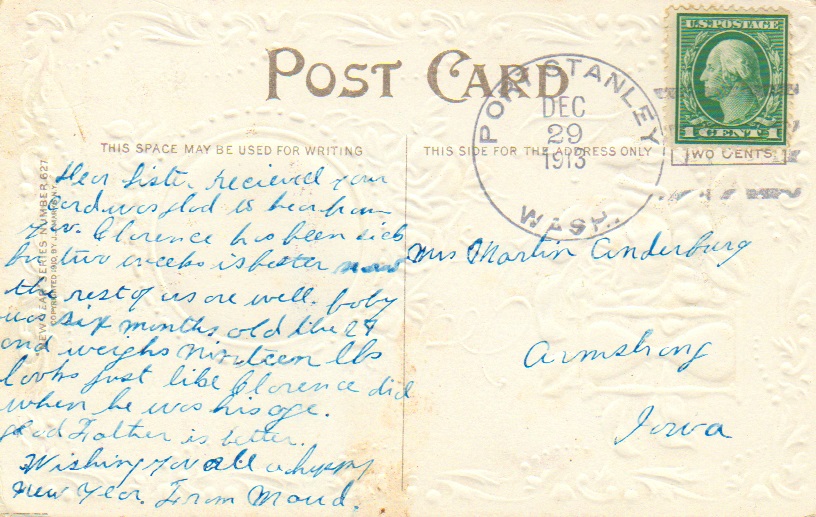 POST CARD
U.S. POSTAGE
1 CENT 1
PORT STANLEY
DEC
29
1913
WASH.
THIS SPACE MAY BE USED FOR WRITING
THIS SIDE FOR THE ADDRESS ONLY
TWO CENTS
NEW YEAR SERIES NUMBER 627
Dear Sister recieved your
card was glad to hear from
you. Clorence has been sick
for two weeks is better now
the rest of us are well. baby
was six months old the 27
and weighs Nineteen lbs
looks just like Clorence did
when he was his age.
glad Father is better.
Wishing you all a happy
New Year. From Maud.
Mrs Martin Anderburg
Armstrong
Iowa